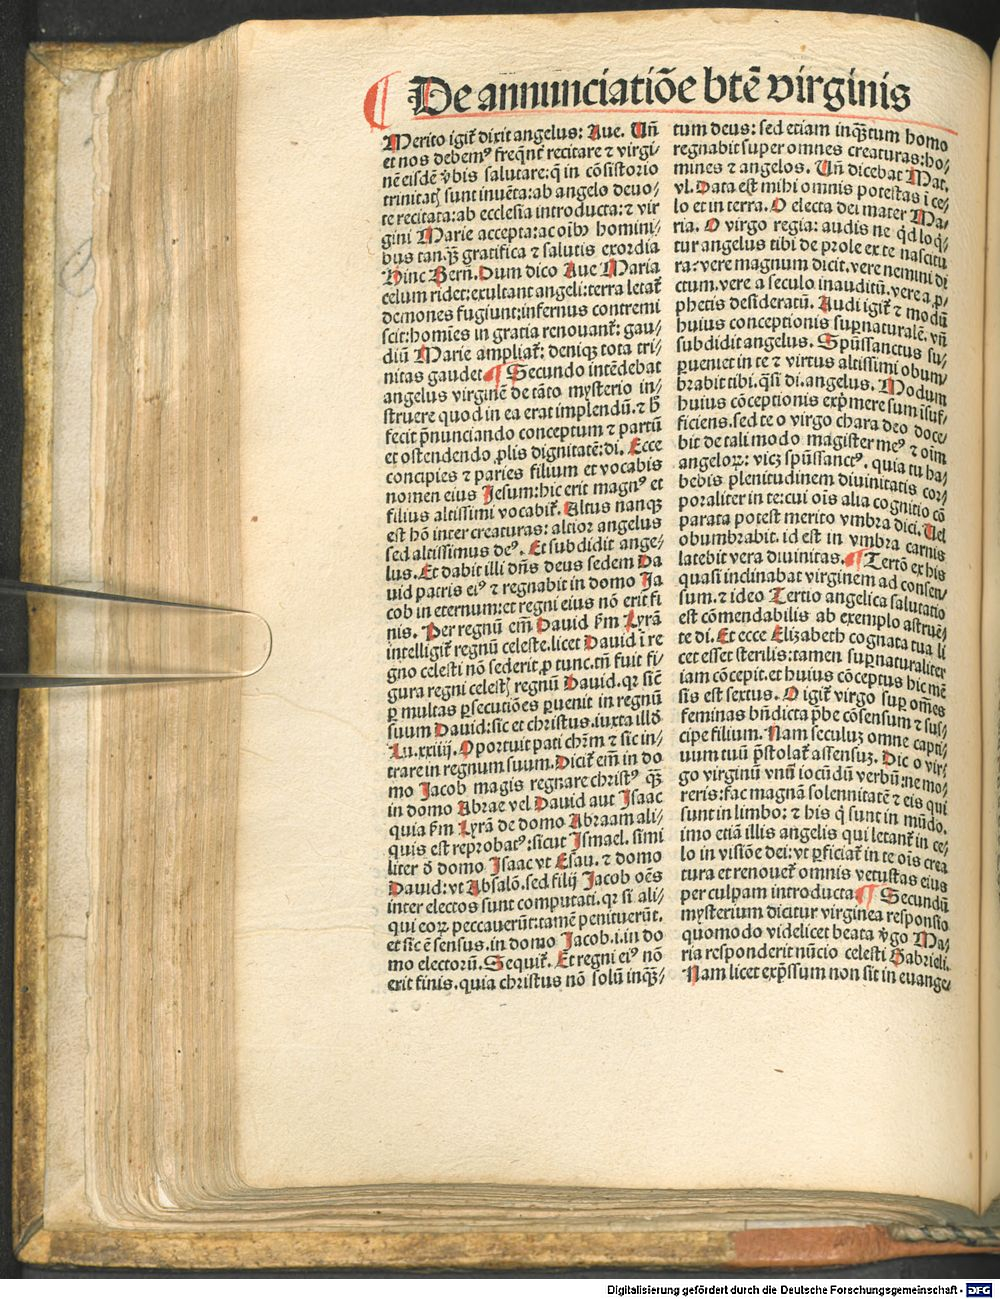 De annunciatiōe btē virginis
Merito igit̄ dixit angelus: Aue. Un̄
et nos debemꝰ freq̄nt̄ recitare ⁊ virgi⸗
nē eisdē v̓bis salutare: q̄ in cōsistorio
trinitatꝭ sunt inuēta: ab angelo deuo⸗
te recitata: ab ecclesia introducta: ⁊ vir
gini Marie accepta: ac oībꝰ homini⸗
bus tan.q̄ꝫ gratifica ⁊ salutis exordia
Hinc Bern̄. Dum dico Aue Maria
celum ridet: exultant angeli: terra letat̄
demones fugiunt: infernus contremi
scit: homīes in gratia renouant̄: gau⸗
diū Marie ampliat̄: deniqꝫ tota tri⸗
nitas gaudet ¶ Secundo intēdebat
angelus virginē de tāto mysterio in⸗
struere quod in ea erat implendū. ⁊ ꝙ
fecit p̄nunciando conceptum ⁊ partū
et ostendendo ꝓlis dignitatē: di. Ecce
concipies ⁊ paries filium et vocabis
nomen eius Jesum: hic erit magnꝰ et
filius altissimi vocabit̄. Altus nanqꝫ
est hō inter creaturas: altior angelus
sed altissimus deꝰ. Et subdidit ange⸗
lus. Et dabit illi dn̄s deus sedem Da
uid patris eiꝰ ⁊ regnabit in domo Ja
cob in eternum: et regni eius nō erit fi
nis. Per regnū em̄ Dauid ẜm Lyrā
intelligit̄ regnū celeste. licet Dauid ī re
gno celesti nō sederit ꝓ tunc. tn̄ fuit fi⸗
gura regni celestꝭ regnū Dauid. qꝛ sic̄
ꝑ multas ꝑsecutiōes ꝑuenit in regnū
suum Dauid: sic et christus. iuxta illd̄
Lu. xxiiij. Oportuit pati chr̄m ⁊ sic in⸗
trare in regnum suum. Dicit̄ em̄ in do
mo Jacob magis regnare christꝰ q̄ꝫ
in domo Abrae vel Dauid aut Isaac
quia ẜm Lyrā de domo Abraam ali⸗
quis est reprobatꝰ: sicut Ismael. simi
liter d̄ domo Isaac vt Esau. ⁊ domo
Dauid: vt Absalō. sed filij Jacob oēs
inter electos sunt computati. qꝛ si ali⸗
qui eoꝝ peccauerūt: tamē penituerūt.
et sic ē sensus. in domo Jacob. i. in do
mo electorū. Sequit̄. Et regni eiꝰ nō
erit finis. quia christus nō solū inq̄ꝫ⸗
tum deus: sed etiam inq̄ꝫtum homo
regnabit super omnes creaturas: ho⸗
mines ⁊ angelos. Un̄ dicebat Mat.
vl. Data est mihi omnis potestas ī ce⸗
lo et in terra. O electa dei mater Ma⸗
ria. O virgo regia: audis ne qd̄ loq̄⸗
tur angelus tibi de prole ex te nascitu
ra: vere magnum dicit. vere nemini di
ctum. vere a seculo inauditū. vere a ꝓ⸗
phetis desideratū. Audi igit̄ ⁊ modū
huius conceptionis suꝑnaturalē. vn̄
subdidit angelus. Spūssanctus su⸗
ꝑueniet in te ⁊ virtus altissimi obum⸗
brabit tibi. q̄si di. angelus. Modum
huius cōceptionis exp̄mere sum īsuf⸗
ficiens. sed te o virgo chara deo doce⸗
bit de tali modo magister meꝰ ⁊ oīm
angeloꝝ: vicꝫ spūssanctꝰ. quia tu ha⸗
bebis plenitudinem diuinitatis cor⸗
poraliter in te: cui oīs alia cognitio cō
parata potest merito vmbra dici. Uel
obumbrabit. id est in vmbra carnis
latebit vera diuinitas. ¶ Tertō ex his
quasi inclinabat virginem ad consen⸗
sum. ⁊ ideo Tertio angelica salutatio
est cōmendabilis ab exemplo astruē⸗
te di. Et ecce Elizabeth cognata tua li
cet esset sterilis: tamen suꝑnaturaliter
iam cōcepit. et huius cōceptus hic mē
sis est sextus. O igit̄ virgo suꝑ om̄es
feminas bn̄dicta p̄be cōsensum ⁊ sus⸗
cipe filium. Nam seculuꝫ omne capti⸗
uum tuū p̄stolat̄ assensuꝫ. Dic o vir⸗
go virginū vnū iocūdū verbū: ne mo⸗
reris: fac magnā solennitatē ⁊ eis qui
sunt in limbo: ⁊ his q̄ sunt in mūdo.
imo etiā illis angelis qui letant̄ in ce⸗
lo in visiōe dei: vt ꝑficiat̄ in te oīs crea
tura et renouet̄ omnis vetustas eius
per culpam introducta ¶ Secundū
mysterium dicitur virginea responsio
quomodo videlicet beata v̓go Ma⸗
ria responderit nūcio celesti Gabrieli.
Nam licet exp̄ssum non sit in euange⸗
Digitalisierung gefördert durch die Deutsche Forschungsgemeinschaft - DFG